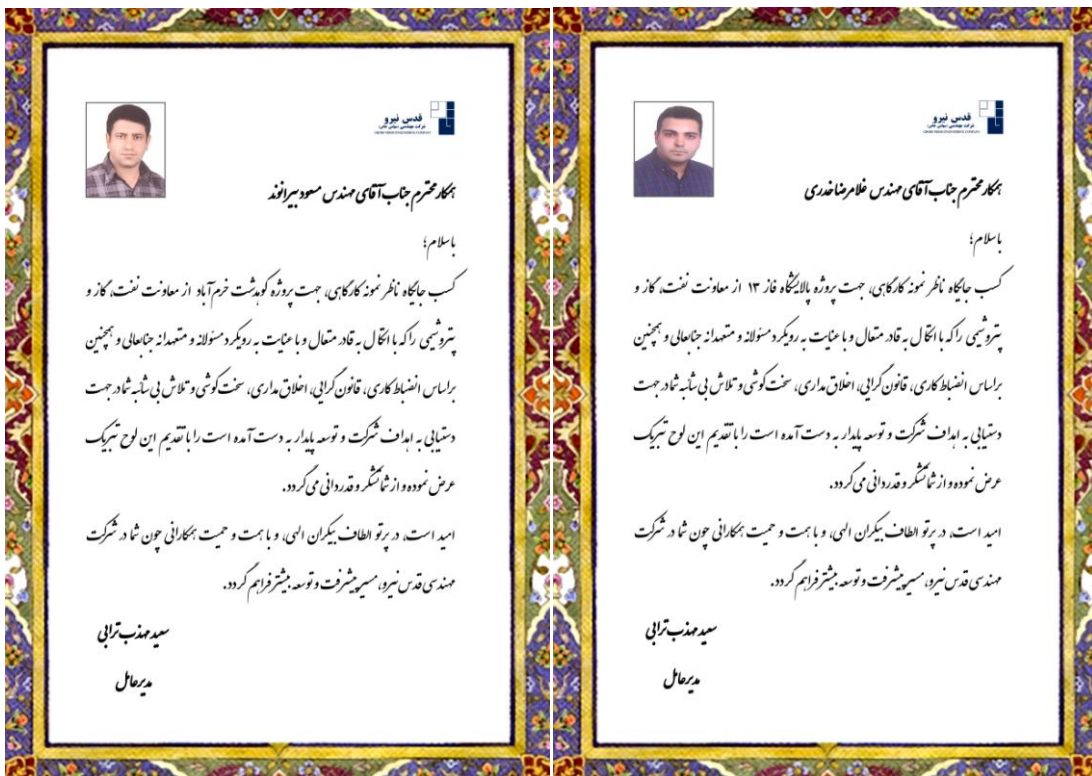 قدس نیرو
همکار محترم جناب آقای مهندس غلامرضا خدری
باسلام؛
کسب جایگاه ناظر نمونه کارگاهی، جهت پروژه پالایشگاه فاز ۱۳ از معاونت نفت، گاز و
پتروشیمی را که با اتکال به قادر متعال و با عنایت به رویکرد مسئولانه و متعهدانه جنابعالی و همچنین
براساس انضباط کاری، قانون گرایی، اخلاق مداری، سخت کوشی و تلاش بی شائبه شما در جهت
دستیابی به اهداف شرکت و توسعه پایدار به دست آمده است را با تقدیم این لوح تبریک
عرض نموده و از شما تشکر و قدردانی می گردد.
امید است، در پرتو الطاف بیکران الهی، و با همت و حمیت همکارانی چون شما در شرکت
مهندسی قدس نیرو، مسیر پیشرفت و توسعه بیشتر فراهم گردد.
سعید مهذب ترابی
مدیرعامل
قدس نیرو
همکار محترم جناب آقای مهندس مسعود بیرانوند
باسلام؛
کسب جایگاه ناظر نمونه کارگاهی، جهت پروژه کوهدشت خرم آباد از معاونت نفت، گاز و
پتروشیمی را که با اتکال به قادر متعال و با عنایت به رویکرد مسئولانه و متعهدانه جنابعالی و همچنین
براساس انضباط کاری، قانون گرایی، اخلاق مداری، سخت کوشی و تلاش بی شائبه شما در جهت
دستیابی به اهداف شرکت و توسعه پایدار به دست آمده است را با تقدیم این لوح تبریک
عرض نموده و از شما تشکر و قدردانی می گردد.
امید است، در پرتو الطاف بیکران الهی، و با همت و حمیت همکارانی چون شما در شرکت
مهندسی قدس نیرو، مسیر پیشرفت و توسعه بیشتر فراهم گردد.
سعید مهذب ترابی
مدیرعامل